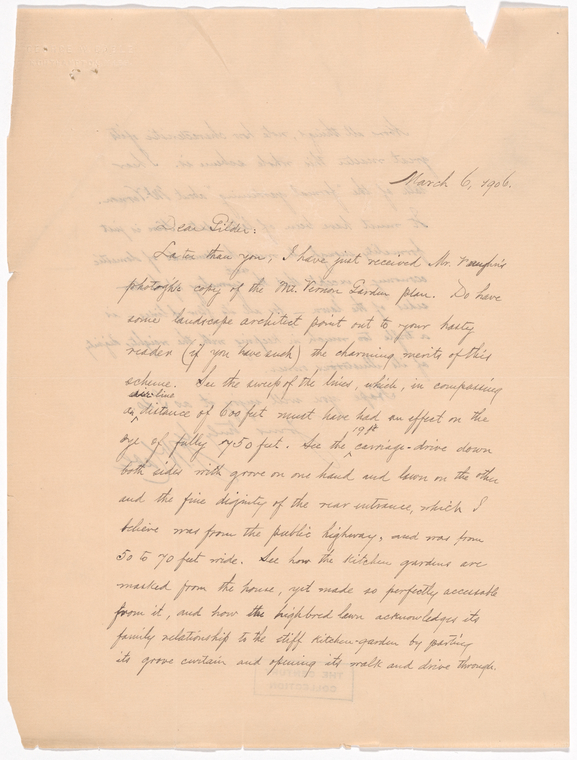 March 6, 1906.
Dear Gilder:
Later than you, I have just received Mr. Vaughn's
copy of the Mt. Vernon Garden plan. Do have
some landscape architect point out to your hasty
reader (if you have such) the charming merits of this
scheme. See the sweep of the lines, which, in compassing
air line
a distance of 600 feet must have had an effect on the
eye of fully 750 feet. See the carriage-drive down
both sides with grove on one hand and lawn on the other
and the fine dignity of the rear entrance, which I
believe was from the public highway, and was from
50 to 70 feet wide. See how the kitchen gardens are
masked from the house, yet made so perfectly accessable
from it, and how the highbred lawn acknowledges its
family relationship to the stiff kitchen-garden by parting
its grove curtain and opening its walk and drive through.